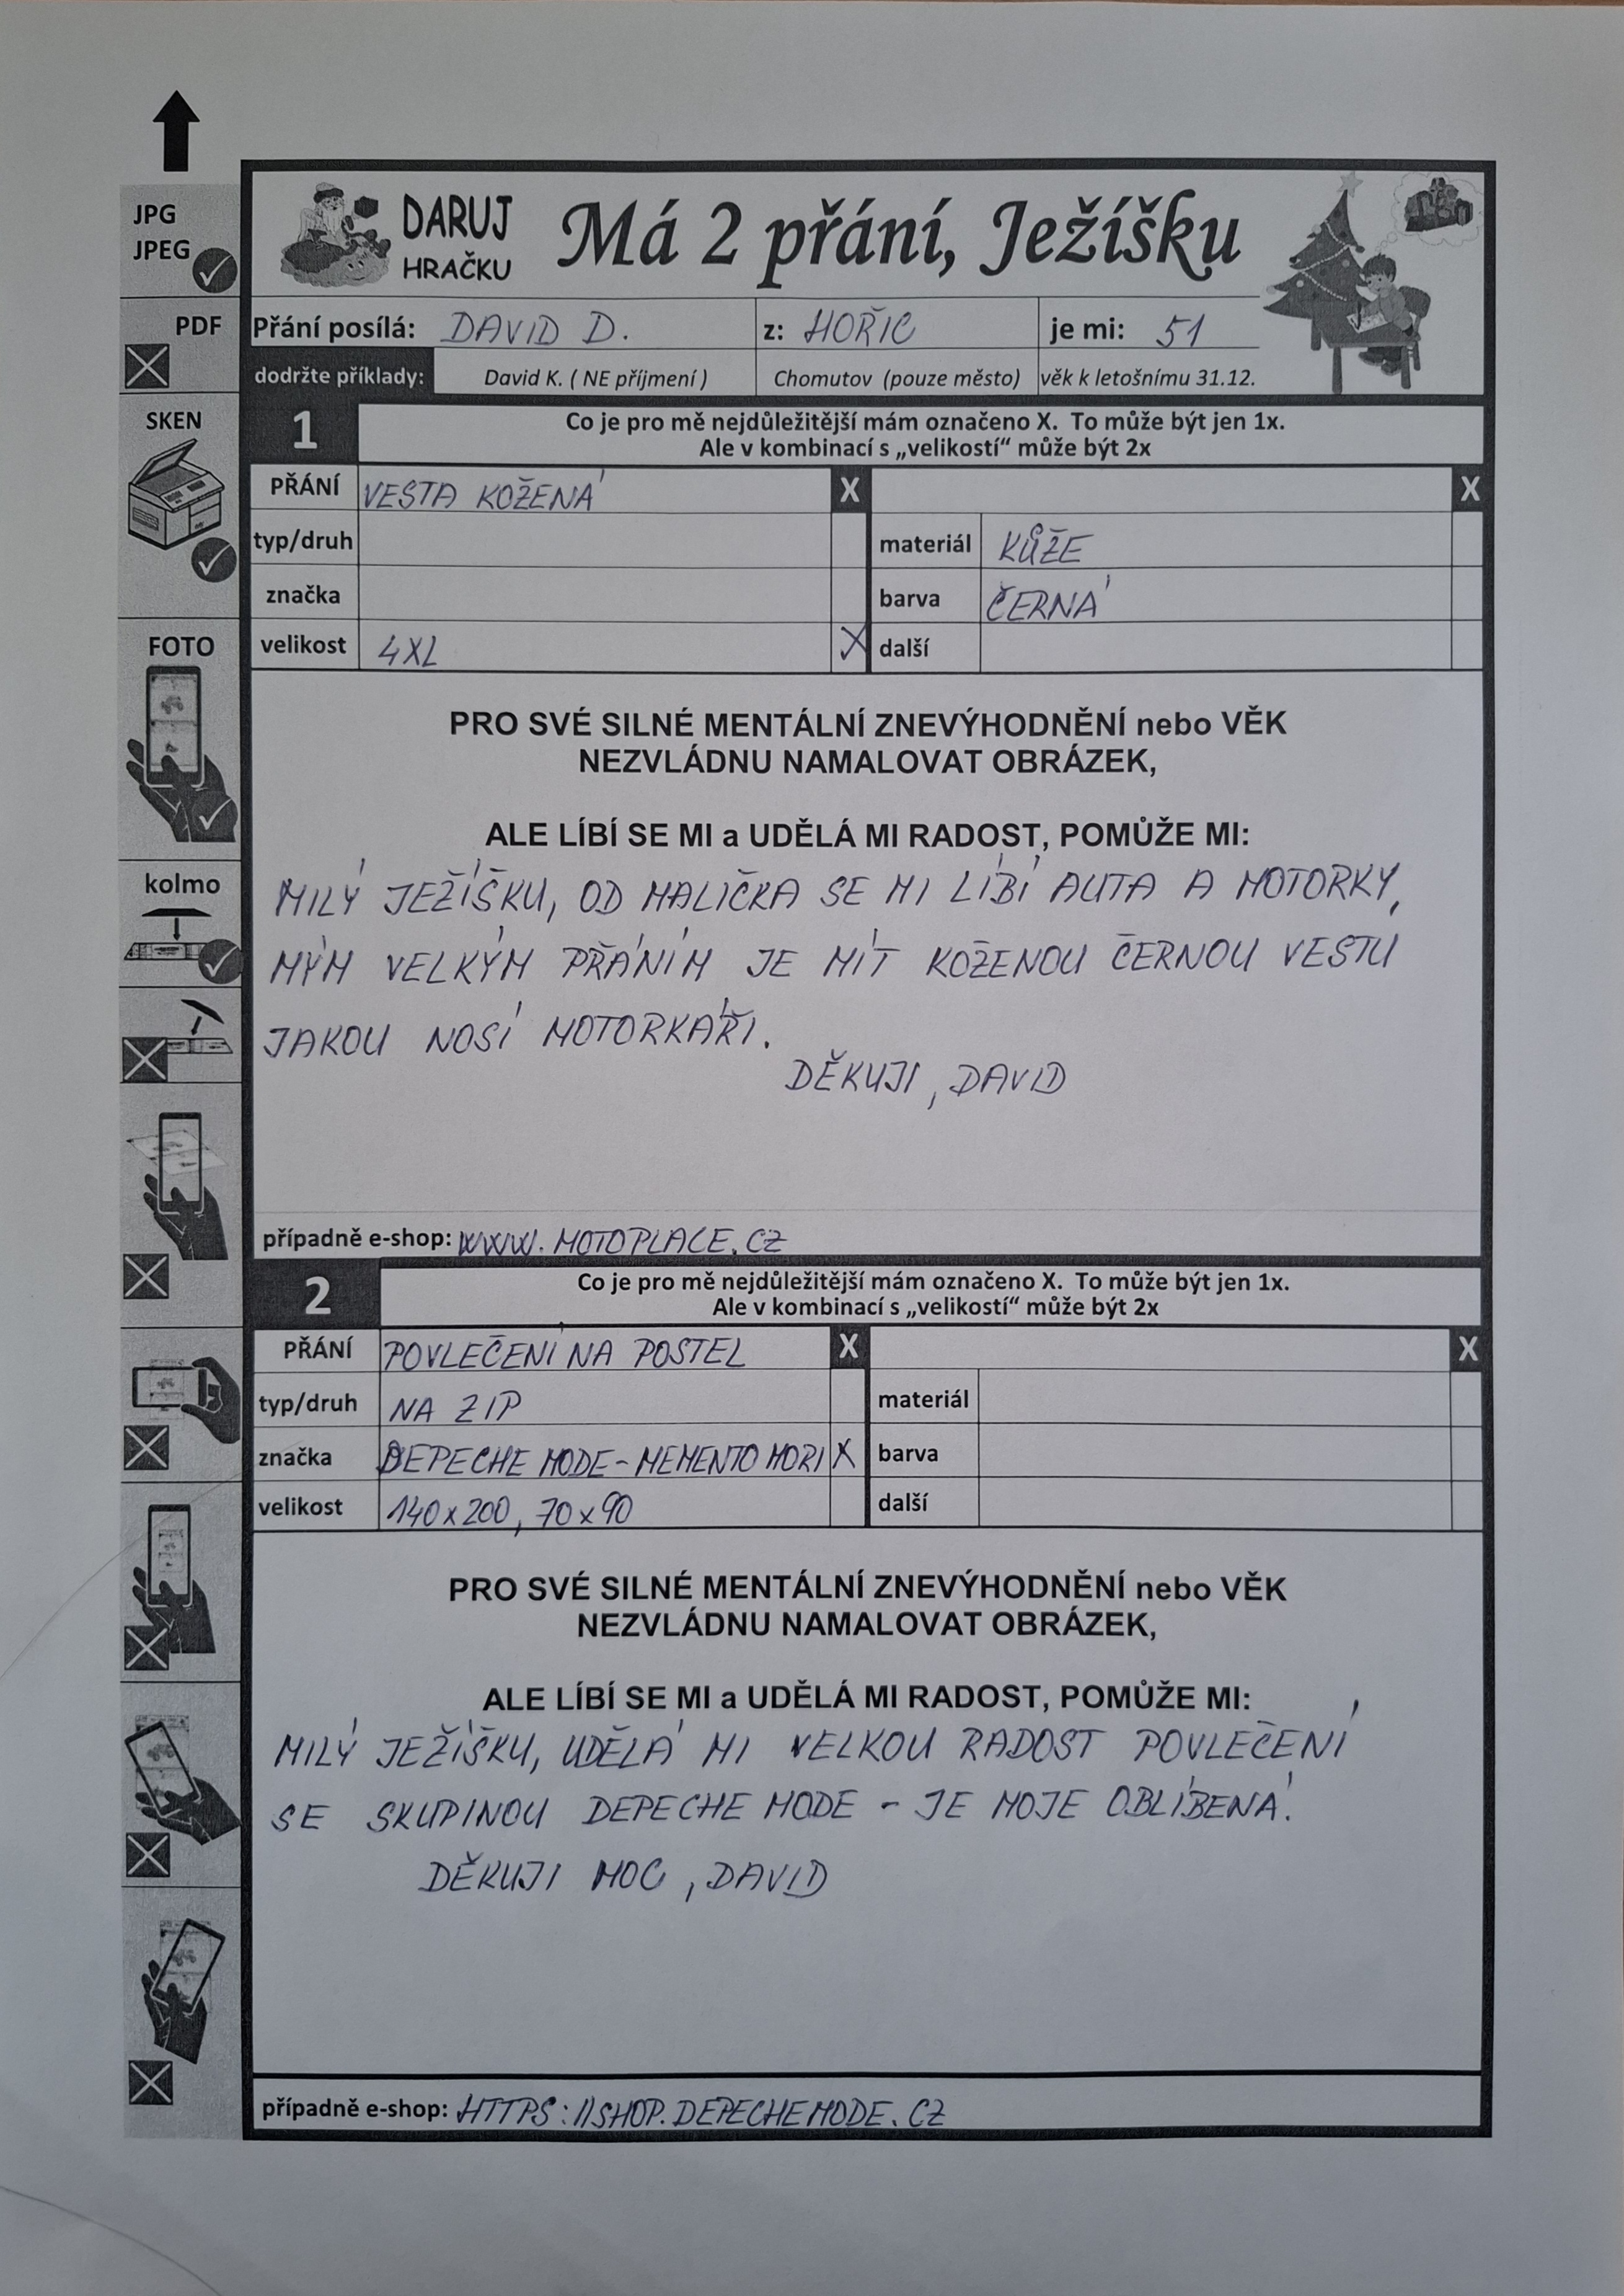 JPG
JPEG
PDF
SKEN
FOTO
kolmo
DARUJ
HRAČKU
Má 2 přání, Ježíšku
Přání posílá: DAVID D. z: HOŘIC je mi: 51
dodržte příklady: David K. ( NE příjmení ) Chomutov (pouze město) věk k letošnímu 31.12.
1 Co je pro mě nejdůležitější mám označeno X. To může být jen 1x.
Ale v kombinací s „velikostí“ může být 2x
PŘÁNÍ VESTA KOŽENÁ X X
typ/druh materiál KŮŽE
značka barva ČERNÁ
velikost 4XL X další
PRO SVÉ SILNÉ MENTÁLNÍ ZNEVÝHODNĚNÍ nebo VĚK
NEZVLÁDNU NAMALOVAT OBRÁZEK,
ALE LÍBÍ SE MI a UDĚLÁ MI RADOST, POMŮŽE MI:
MILÝ JEŽÍŠKU, OD MALIČKA SE MI LÍBÍ AUTA A MOTORKY,
MÝM VELKÝM PŘÁNÍM JE MÍT KOŽENOU ČERNOU VESTU
JAKOU NOSÍ MOTORKÁŘI.
DĚKUJI, DAVID
případně e-shop: WWW.MOTOPLACE.CZ
2 Co je pro mě nejdůležitější mám označeno X. To může být jen 1x.
Ale v kombinací s „velikostí“ může být 2x
PŘÁNÍ POVLEČENÍ NA POSTEL X X
typ/druh NA ZIP materiál
značka DEPECHE MODE - MEMENTO MORI X barva
velikost 140x200, 70x90 další
PRO SVÉ SILNÉ MENTÁLNÍ ZNEVÝHODNĚNÍ nebo VĚK
NEZVLÁDNU NAMALOVAT OBRÁZEK,
ALE LÍBÍ SE MI a UDĚLÁ MI RADOST, POMŮŽE MI:
MILÝ JEŽÍŠKU, UDĚLÁ MI VELKOU RADOST POVLEČENÍ
SE SKUPINOU DEPECHE MODE - JE MOJE OBLÍBENÁ.
DĚKUJI MOC, DAVID
případně e-shop: HTTPS://SHOP.DEPECHEMODE.CZ